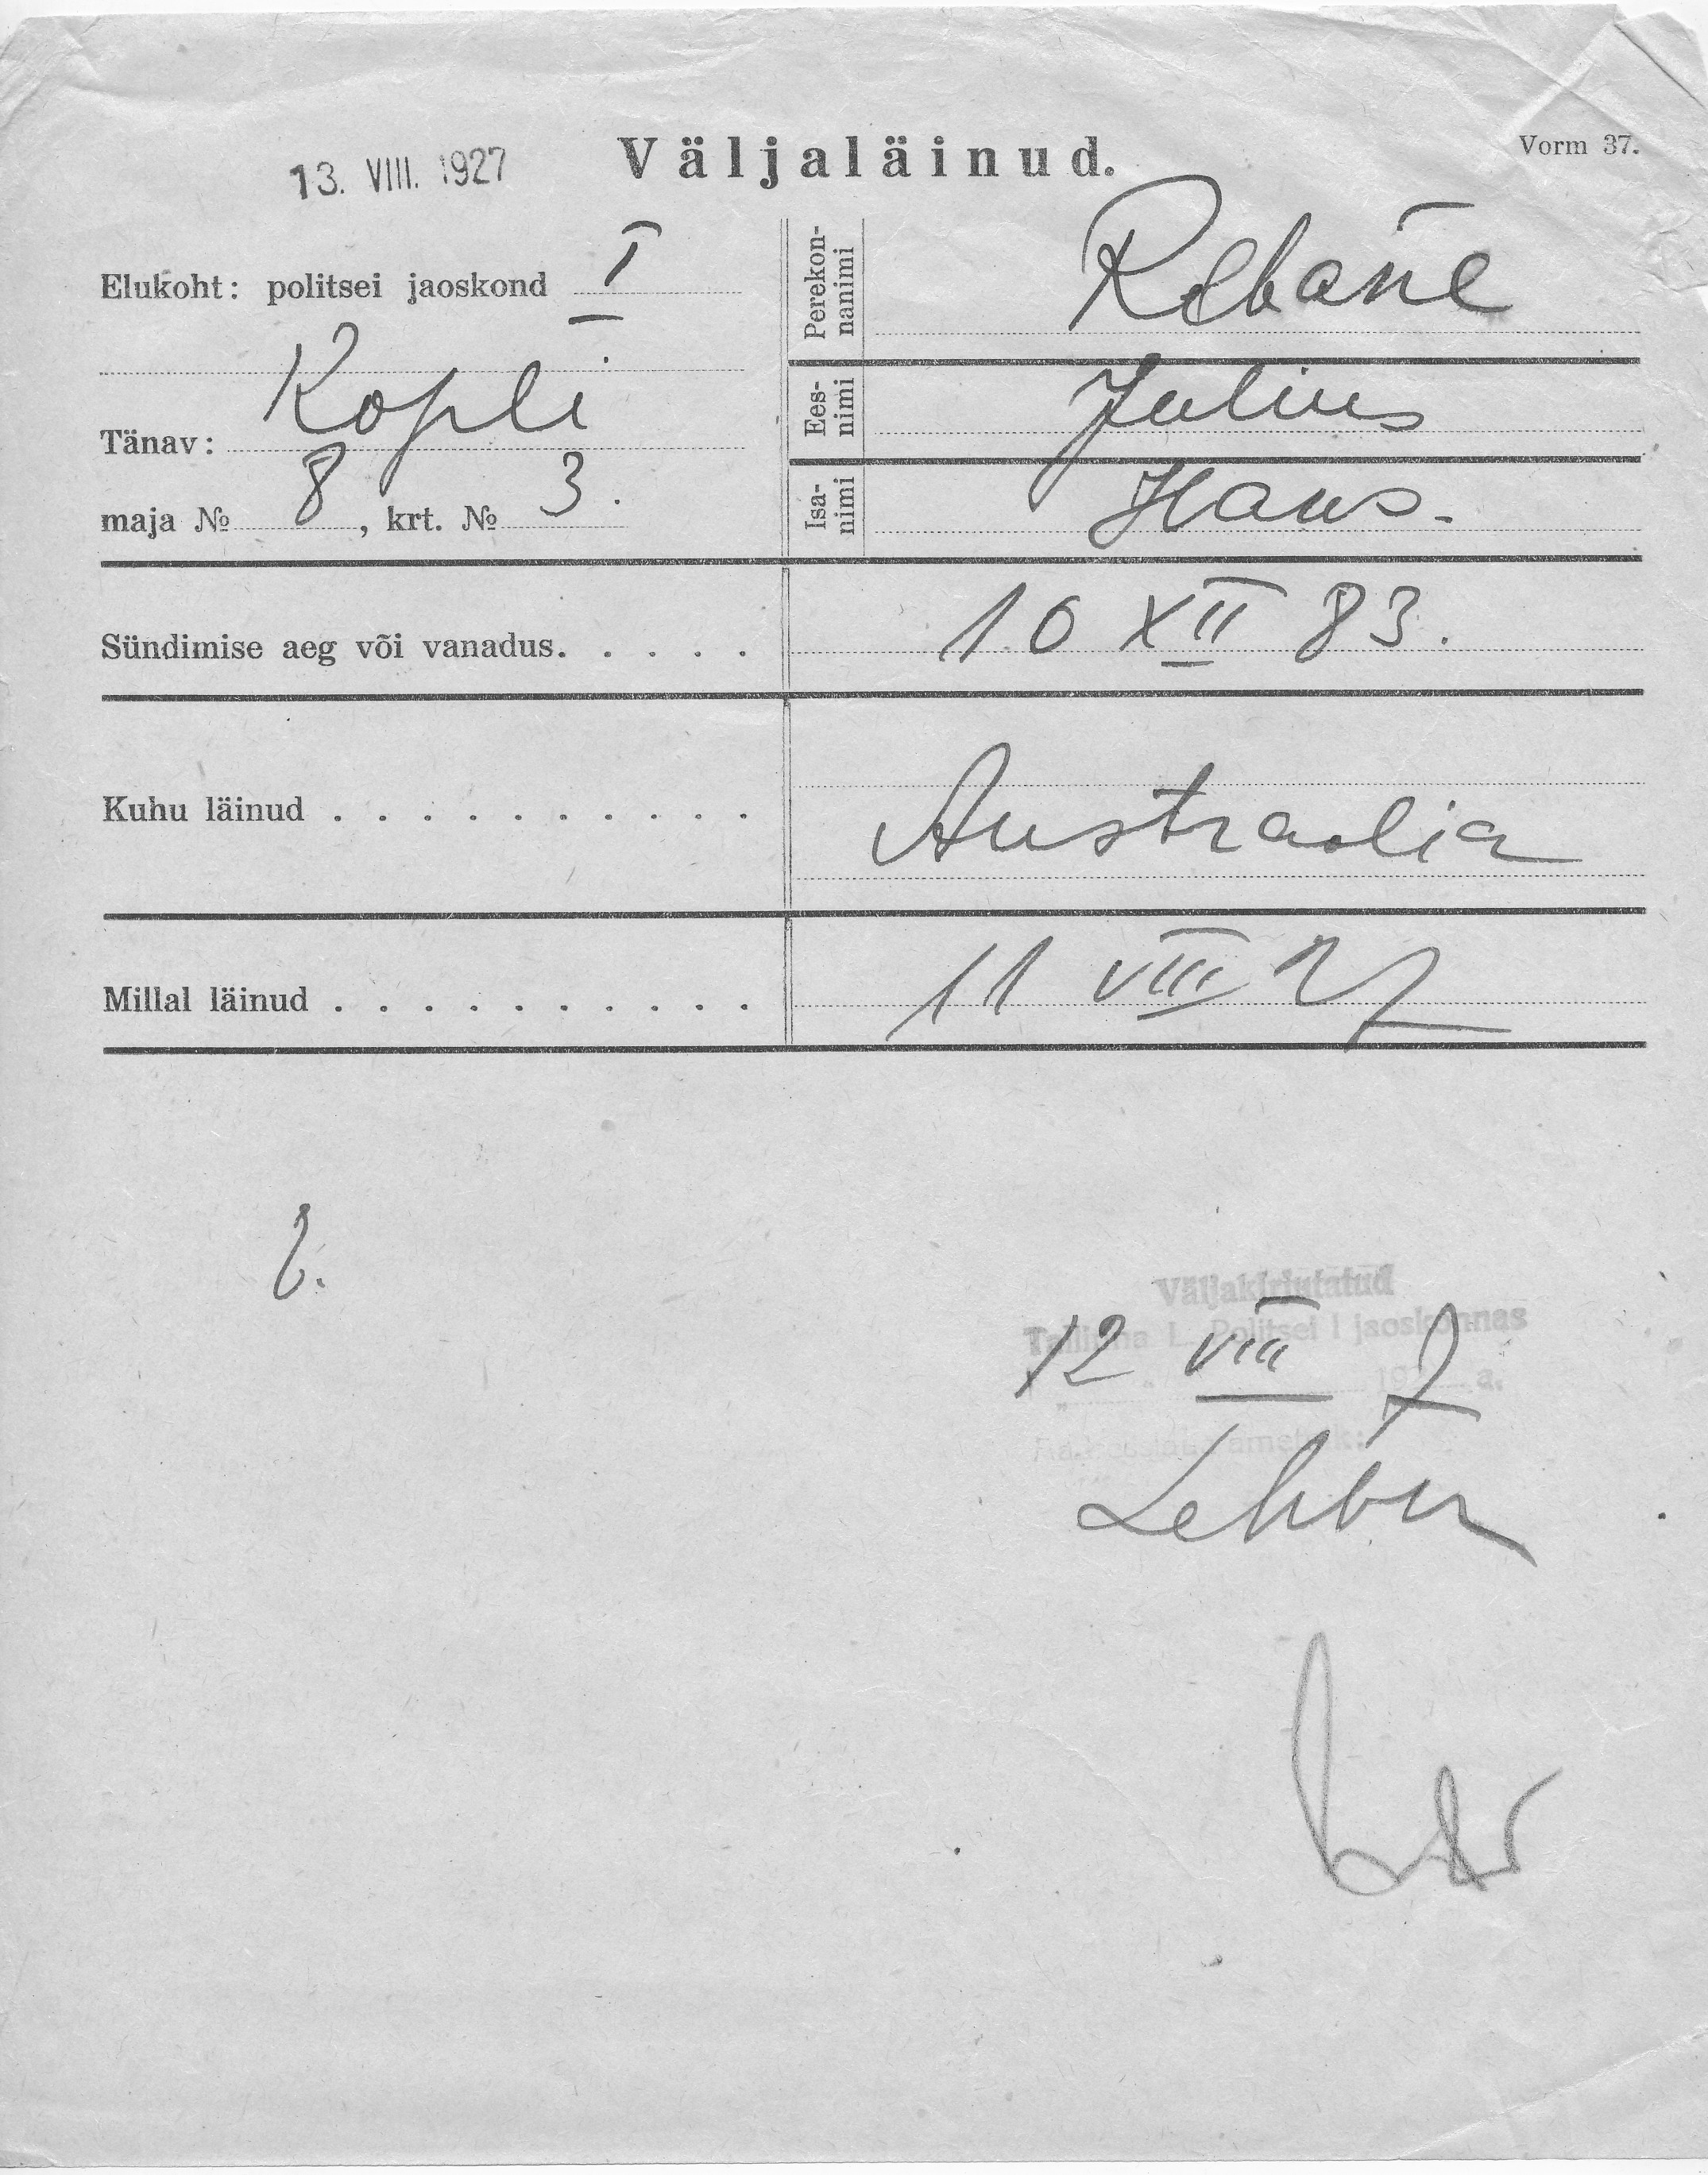 13. VIII. 1927
Väljaläinud.
Vorm 37.
Elukoht: politsei jaoskond I
Kopli
Tänav:
maja № 8, krt. № 3.
Perekon-
nanimi
Rebane
Ees-
nimi
Julius
Isa-
nimi
Hans.
Sündimise aeg või vanadus. . . . . 10 XII 83.
Kuhu läinud . . . . . . . . . . Australia
Millal läinud . . . . . . . . . . 11 VIII 27
Väljakirjutatud
Tallinna L. Politsei I jaoskonnas
12 VIII 7